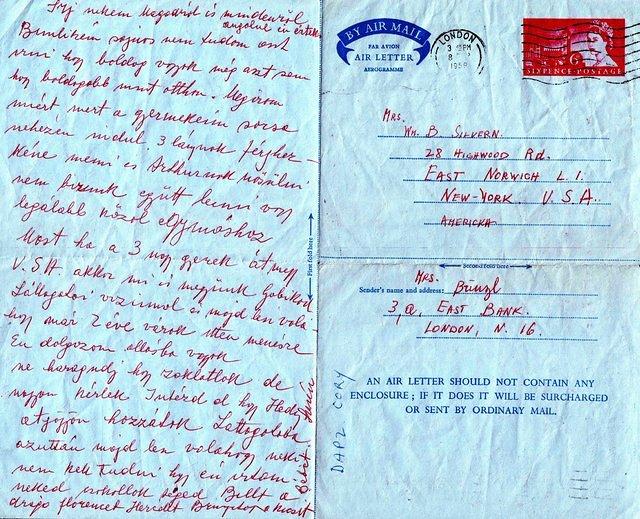 Írj nekem Magadról is mindenről
angolul is értek
sajnos nem tudom azt
írni hogy boldog vagyok még azt sem
hogy boldogabb mint otthon. Megirom
miért mert a gyermekeim sorsa
nehezen indul, 3 lánynak férjhez
kéne menni és Arthurnak nősülni
nem bírunk együtt lenni vagy
legalább közel egymáshoz
Most ha a 3 nagy gyerek átmegy
U.S.A. akkor mi is megyünk
Látogatói vizumal és majd lesz vala-
hogy már 2 éve várok itten menesre
Én dolgozom állásba vagyok
ne haragudj hogy zaklatlak de
nagyon kérlek Intézd el hogy Hedy
átjöjjön hozzátok Látogatóba
azután majd lesz valahogy neki
nem kell tudni hogy én írtam
neked csókollak téged Billt a
drága
BY AIR MAIL
PAR AVION
AIR LETTER
AEROGRAMME
LONDON
3 PM
8
1958
SIXPENCE POSTAGE
MRS.
WM. B SILVERN.
28 HIGHWOOD RD.
EAST NORWICH L.I.
NEW-YORK. U.S.A..
AMERICKA
First fold here
Second fold here
MRS.
Sender's name and address: Bünzl
3,a, EAST BANK.
LONDON, N. 16.
AN AIR LETTER SHOULD NOT CONTAIN ANY
ENCLOSURE ; IF IT DOES IT WILL BE SURCHARGED
OR SENT BY ORDINARY MAIL.
DAPZ CORY